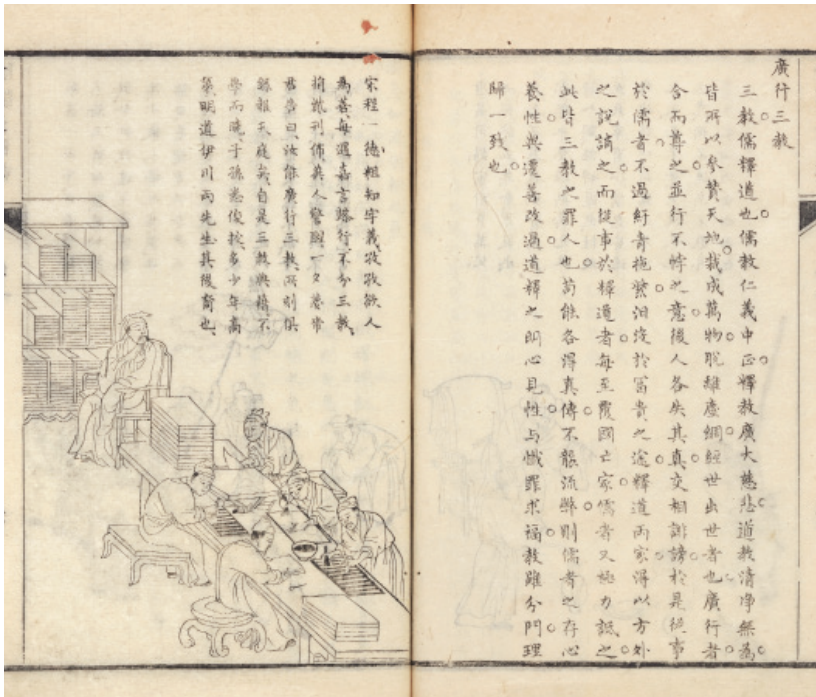 廣行三教
三教儒釋道也儒教仁義中正釋教廣大慈悲道教清淨無為
皆所以參贊天地裁成萬物脫離塵網經世出世者也廣行者
合而尊之並行不悖之意後人各失其真交相誹謗於是從事
於儒者不過紆青拖紫汩沒於富貴之途釋道兩家得以方外
之說誚之而從事於釋道者每至覆國亡家儒者又極力詆之
此皆三教之罪人也苟能各得真傳不襲流弊則儒者之存心
養性與遷善改過道釋之明心見性与懺罪求福教雖分門理
歸一致也
宋程一德粗知字義孜孜欲人
為善每遇嘉言懿行不分三教
捐貲刊佈與人警醒一夕夢帝
君告曰汝能廣行三教所刻俱
歸報天庭矣自是三教典籍不
學而曉子孫悉俊拔多少年高
第明道伊川兩先生其後裔也